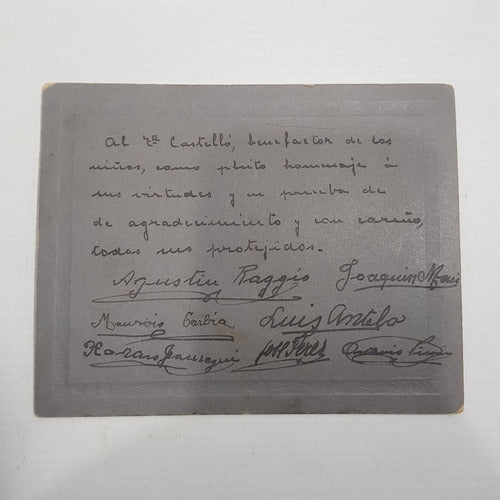 Al Castelló, benefactor de los
niños, como pleito hommaje à
sus virtudes y en prueba de
de agradecimiento y con cariño,
todos sus protejidos.
Agustin Raggio Joaquin
Mauricio
Luis Antelo
Jauregui José Perez